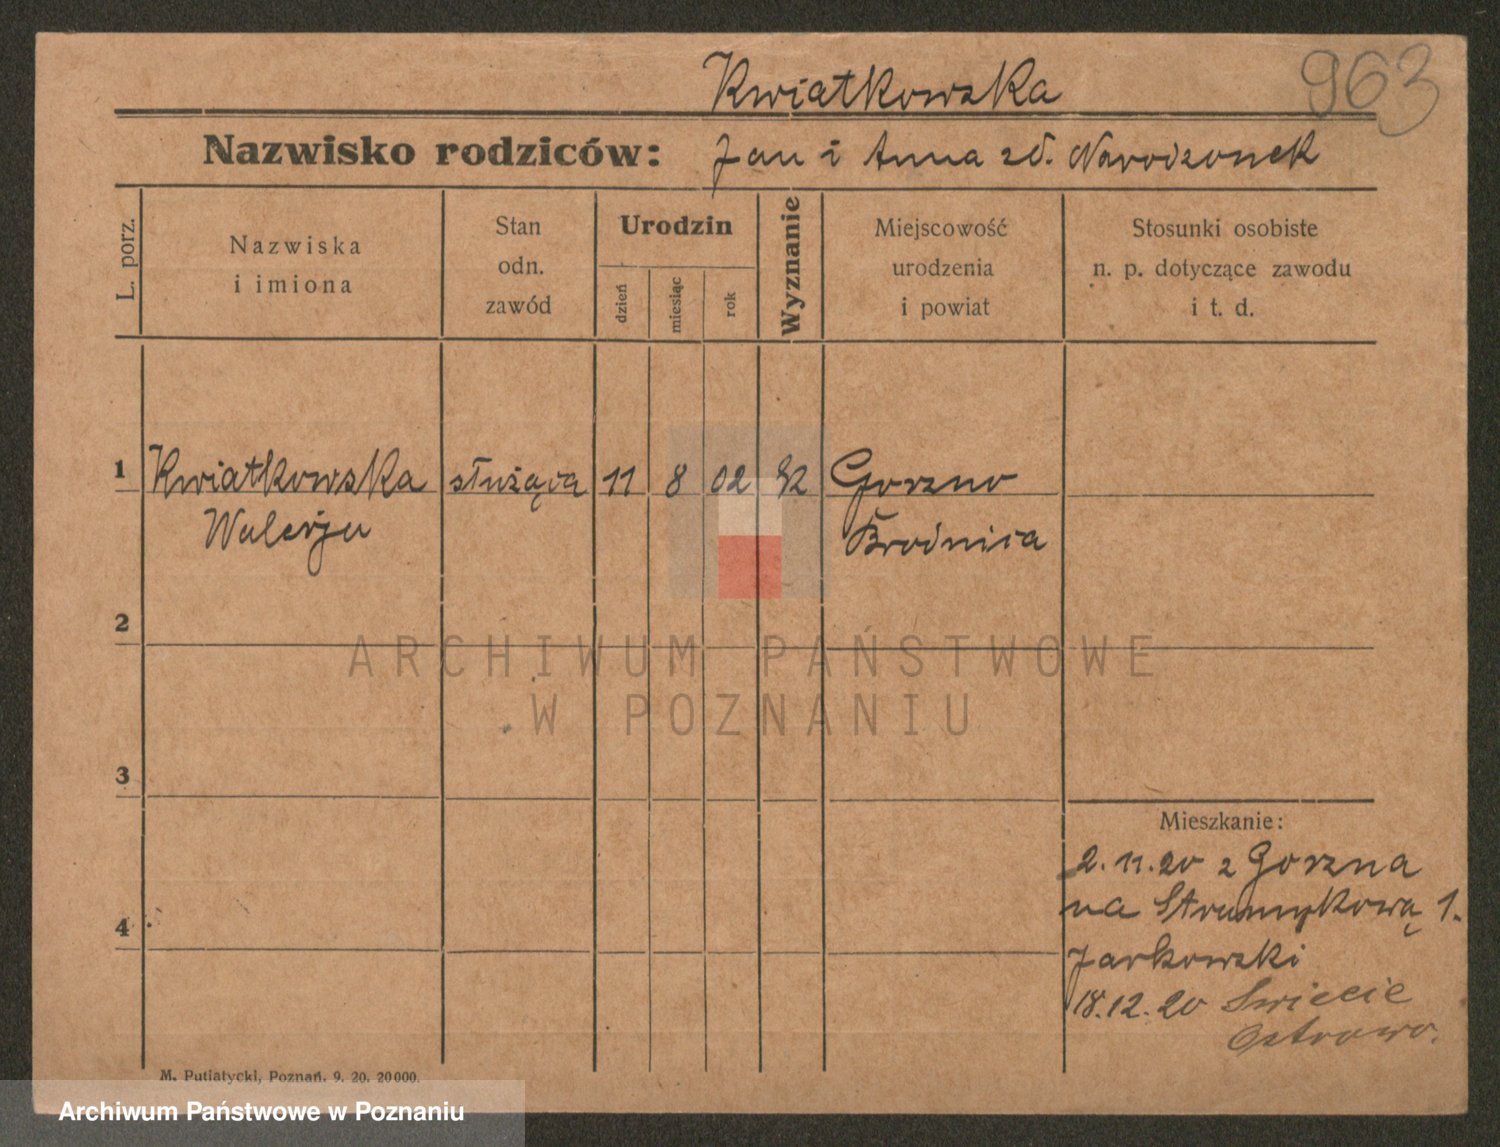 963
Kwiatkowska
Nazwisko rodziców: Jan i Anna zd. Narodzonek
L. porz.
Nazwiska
i imiona
Stan
odn.
zawód
Urodzin
dzień
miesiąc
rok
Wyznanie
Miejscowość
urodzenia
i powiat
Stosunki osobiste
n. p. dotyczące zawodu
i t. d.
1 Kwiatkowska służąca 11 8 02 Gorzno
Walerja Brodnica
2
ARCHIWUM PAŃSTWOWE
W POZNANIU
3
Mieszkanie:
2.11.20 z Gorzna
4 na Strumykową 1.
Jarkowski
18.12.20 Swiecie
Ostrowo.
M. Putiatycki, Poznań. 9. 20. 20000.
Archiwum Państwowe w Poznaniu